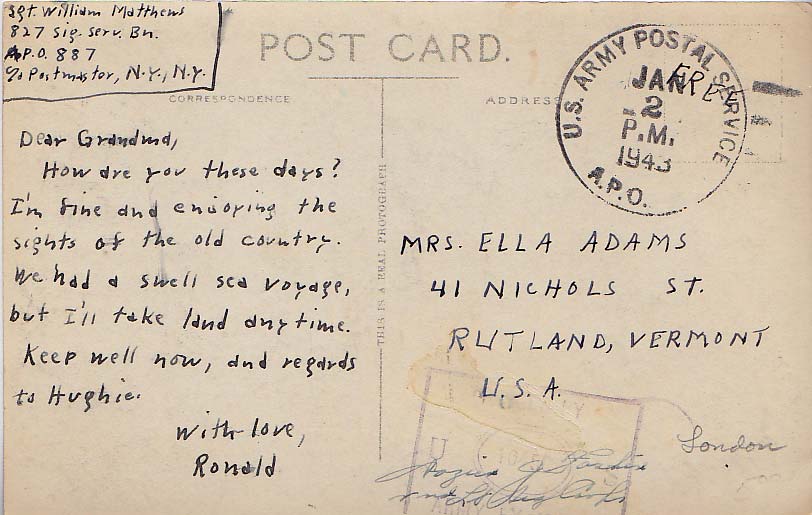 Sgt. William Matthews
827 Sig. Serv. Bn.
A.P.O. 887
c/o Postmaster, N.Y., N.Y.
POST CARD.
CORRESPONDENCE
ADDRESS
U.S. ARMY POSTAL SERVICE
JAN
2
P.M.
1943
A.P.O.
FREE
Dear Grandma,
How are you these days?
I'm fine and enjoying the
sights of the old country.
We had a swell sea voyage,
but I'll take land anytime.
Keep well now, and regards
to Hughie.
With love,
Ronald
THIS IS A REAL PHOTOGRAPH
MRS. ELLA ADAMS
41 NICHOLS ST.
RUTLAND, VERMONT
U.S.A.
London